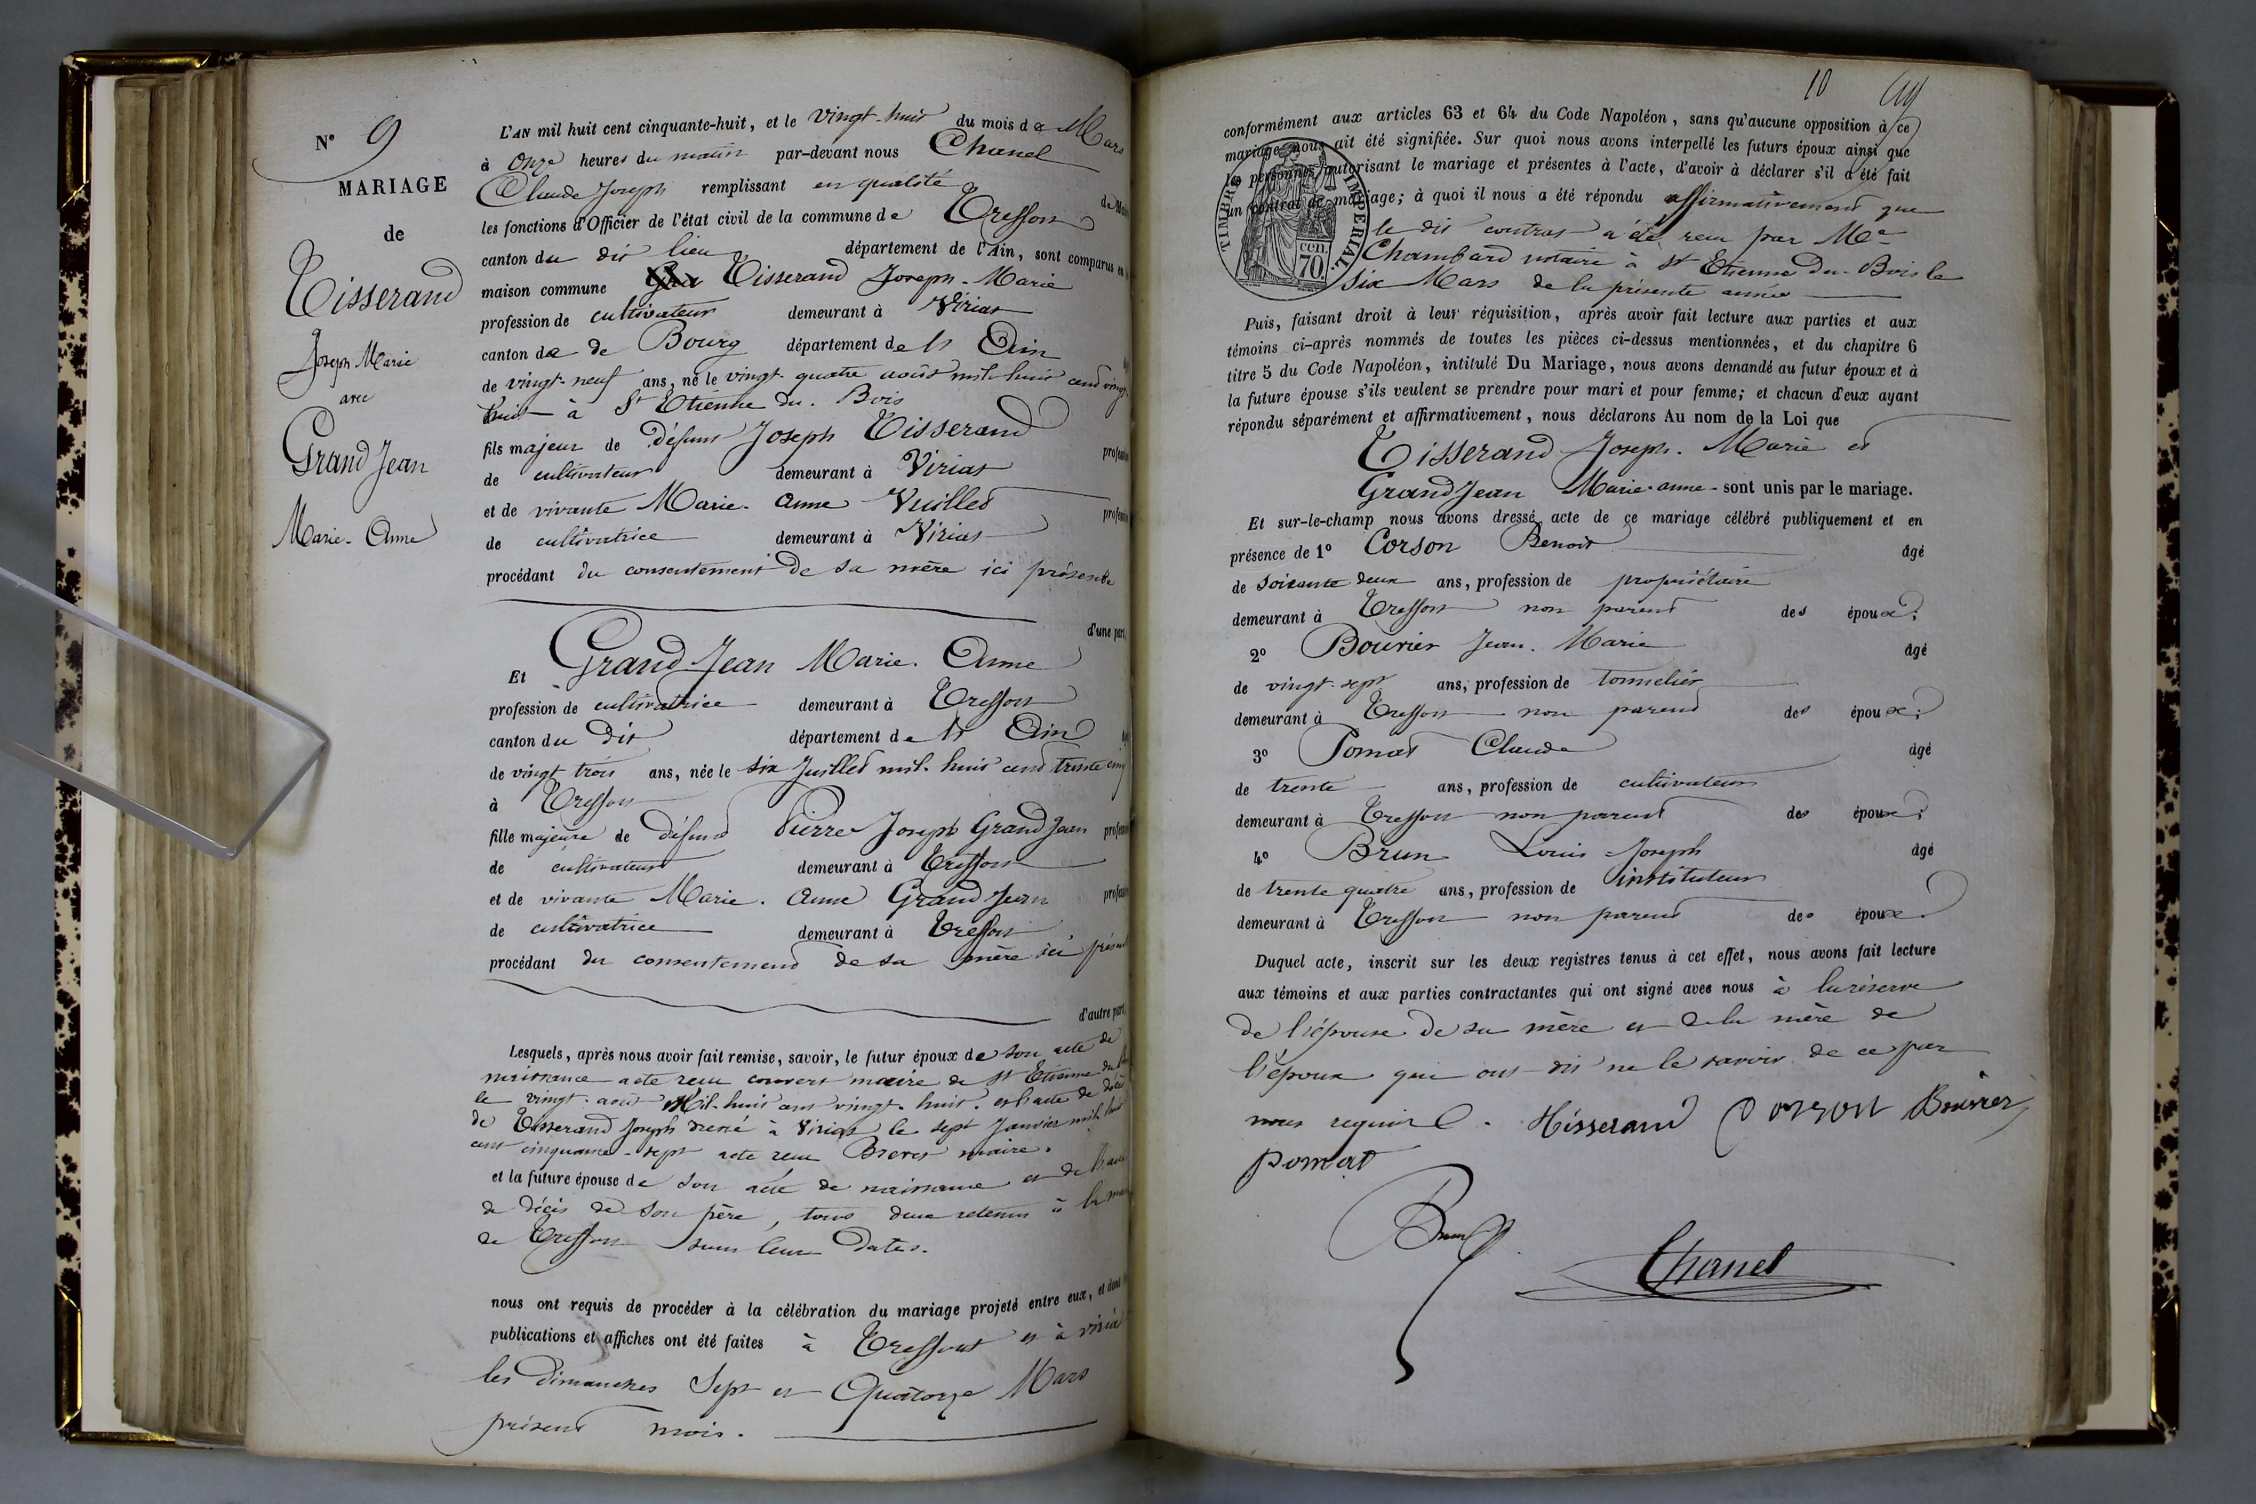 N° 9
MARIAGE
de
Tisserand
Joseph Marie
avec
Grand Jean
Marie-Anne
L'AN mil huit cent cinquante-huit, et le vingt-huit du mois de Mars
à onze heures du matin par-devant nous Chanel
Claude Joseph remplissant en qualité de Maire
les fonctions d'Officier de l'état civil de la commune de Treffort
canton du dit lieu département de l'Ain, sont comparus en
maison commune Tisserand Joseph-Marie
profession de cultivateur demeurant à Viriat
canton de de Bourg département de l' Ain
de vingt-neuf ans, né le vingt-quatre août mil-huit cent vingt
huit à St Etienne du-Bois
fils majeur de défunt Joseph Tisserand profession
de cultivateur demeurant à Viriat
et de vivante Marie-anne Vuillet profession
de cultivatrice demeurant à Viriat
procédant du consentement de sa mère ici présente
d'une part,
Et Grand Jean Marie-Anne
profession de cultivatrice demeurant à Treffort
canton du dit département de l' Ain
de vingt trois ans, née le six Juillet mil-huit cent trente cinq
à Treffort
fille majeure de défunt Pierre Joseph Grand Jean profession
de cultivateur demeurant à Treffort
et de vivante Marie-anne Grand Jean profession
de cultivatrice demeurant à Treffort
procédant du consentement de sa mère ici présente
d'autre part,
Lesquels, après nous avoir fait remise, savoir, le futur époux de son acte de
naissance acte reçu maire de St Etienne du
le vingt-août Mil-huit cent vingt-huit. et l'acte de décès
de Tisserand Joseph dressé à Viriat le sept Janvier mil-huit
cent cinquante-sept acte reçu maire.
et la future épouse de son acte de naissance et de l'acte
de décès de son père, tous deux retenus à la
de Treffort sous leur dates.
nous ont requis de procéder à la célébration du mariage projeté entre eux, et dont
publications et affiches ont été faites à Treffort et à viriat
les dimanches Sept et Quatorze Mars
présent mois.
10
conformément aux articles 63 et 64 du Code Napoléon, sans qu'aucune opposition à ce
mariage nous ait été signifiée. Sur quoi nous avons interpellé les futurs époux ainsi que
les personnes autorisant le mariage et présentes à l'acte, d'avoir à déclarer s'il a été fait
un contrat de mariage; à quoi il nous a été répondu affirmativement que
TIMBRE IMPERIAL
70 cen.
le dit contrat a été reçu par Me
Chambard notaire à St Etienne du-Bois le
six Mars de la présente année
Puis, faisant droit à leur réquisition, après avoir fait lecture aux parties et aux
témoins ci-après nommés de toutes les pièces ci-dessus mentionnées, et du chapitre 6
titre 5 du Code Napoléon, intitulé Du Mariage, nous avons demandé au futur époux et à
la future épouse s'ils veulent se prendre pour mari et pour femme; et chacun d'eux ayant
répondu séparément et affirmativement, nous déclarons Au nom de la Loi que
Tisserand Joseph-Marie et
Grand Jean Marie-anne - sont unis par le mariage.
Et sur-le-champ nous avons dressé acte de ce mariage célébré publiquement et en
présence de 1° Corson Benoit âgé
de soixante deux ans, profession de propriétaire
demeurant à Treffort non parent des époux;
2° Bouvier Jean-Marie âgé
de vingt-sept ans, profession de tonnelier
demeurant à Treffort non parent des époux;
3° Pomat Claude âgé
de trente ans, profession de cultivateur
demeurant à Treffort non parent des époux;
4° Brun Louis-Joseph âgé
de trente quatre ans, profession de instituteur
demeurant à Treffort non parent des époux
Duquel acte, inscrit sur les deux registres tenus à cet effet, nous avons fait lecture
aux témoins et aux parties contractantes qui ont signé avec nous à la réserve
de l'épouse de sa mère et de la mère de
l'époux qui ont dit ne le savoir de ce par
nous requis. Tisserand Corson Bouvier
pomat
Brun
Chanel